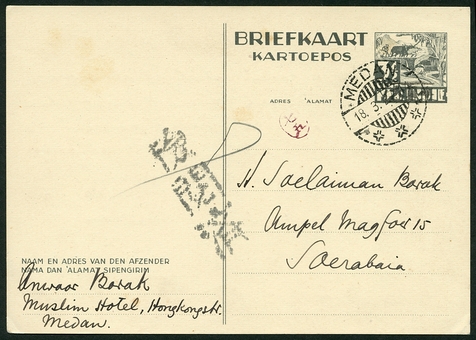 BRIEFKAART
KARTOEPOS
ADRES 'ALAMAT
MEDAN
18.3
H. Soelaiman Barak
Ampel Magfoer 15
Soerabaia
NAAM EN ADRES VAN DEN AFZENDER
NAMA DAN 'ALAMAT SIPENGIRIM
Anwaar Barak
Muslim Hotel, Hongkongstr.
Medan.